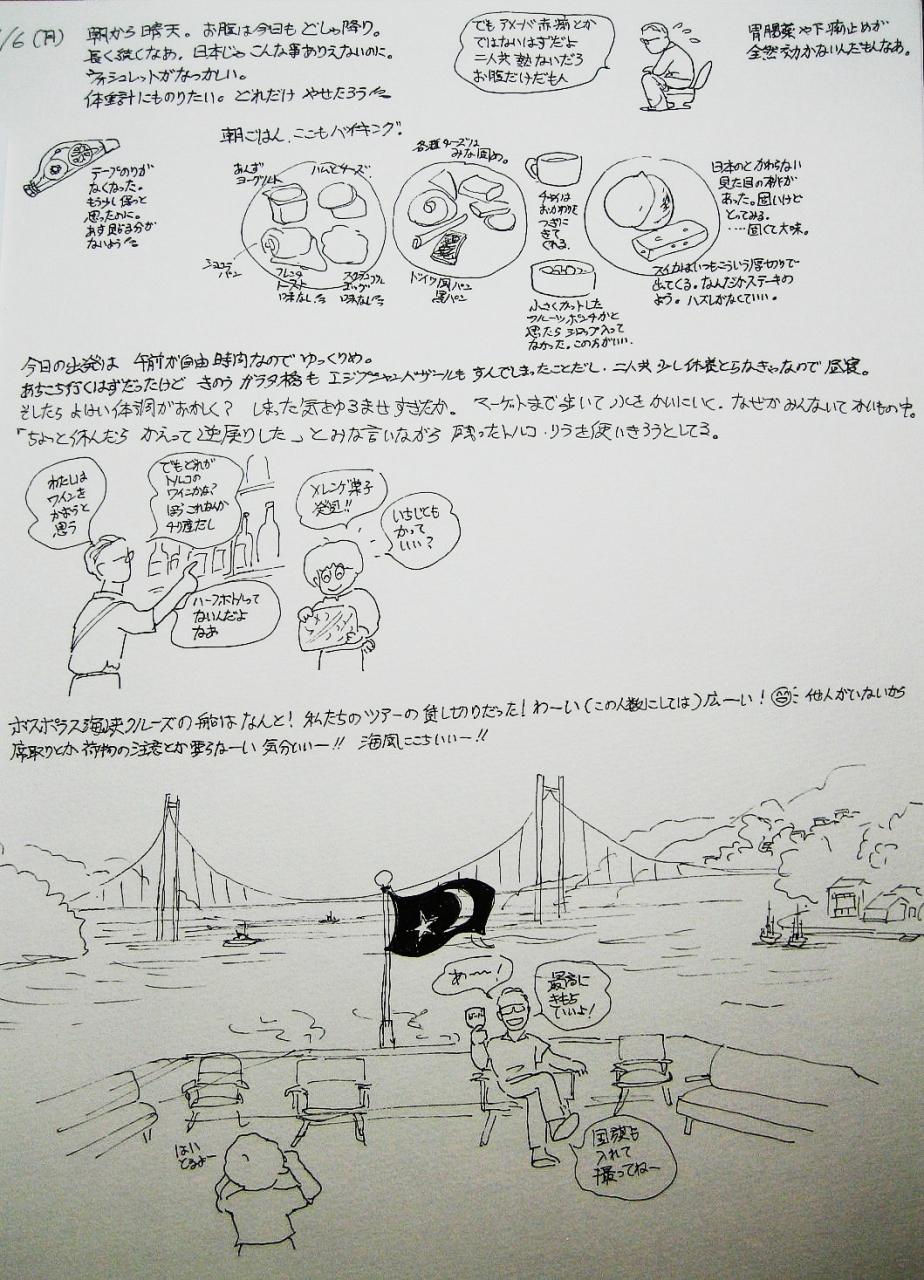 /6(月)
朝から晴天。お腹は今日もどしゃ降り。
長く続くなあ。日本じゃこんな事ありえないのに。
ウォシュレットがなつかしい。
体重計にものりたい。どれだけやせたろう
でもアメーバ赤痢とか
ではないはずだよ
二人共熱ないだろ
お腹だけだもん
胃腸薬や下痢止めが
全然効かないんだもんなあ。
朝ごはん、ここもバイキング。
テープのりが
なくなった。
もう少し保つと
思ったのに。
あす貼る分が
ないよう
あんず
ヨーグルト
ハムとチーズ
ショコラ
パン
フレンチ
トースト
味なし
スクランブル
エッグ
味なし
各種チーズは
みな固め。
ドイツ風パン
黒パン
チャイは
おかわりを
つぎに
きて
くれる。
小さくカットした
フルーツポンチかと
思ったらシロップ入って
なかった。この方がいい。
日本のとかわらない
見た目の桃が
あった。固いけど
とってみる。
……固くて大味。
スイカはいつもこういう厚切りで
出てくる。なんだかステーキの
よう。ハズレがなくていい。
今日の出発は 午前が自由時間なのでゆっくりめ。
あちこち行くはずだったけど きのうガラタ橋もエジプシャンバザールもすんでしまったことだし、二人共少し休養とらなきゃなので昼寝。
そしたらよけい体調がおかしく? しまった気をゆるませすぎたか。 マーケットまで歩いて水をかいにいく。なぜかみんないてかいもの中。
「ちょっと休んだら かえって逆戻りした」とみな言いながら 残ったトルコ・リラを使いきろうとしてる。
わたしは
ワインを
かおうと
思う
でもどれが
トルコの
ワインかな?
ほらこれなんか
チリ産だし
ハーフボトルって
ないんだよ
なあ
メレンゲ菓子
発見!!
いちじくも
かって
いい?
ボスポラス海峡クルーズの船はなんと!私たちのツアーの貸し切りだった!わーい(この人数にしては)広ーい! 他人がいないから
席取りとか荷物の注意とか要らなーい 気分いいー!! 海風ここちいいー!!
あ〜〜!
最高に
きもち
いいよ!
国旗も
入れて
撮ってねー
はい
とるよー